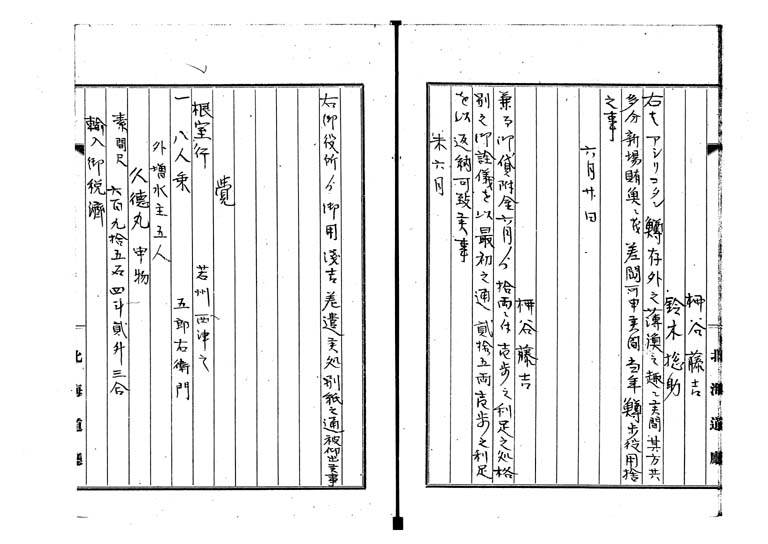 柵谷藤吉
鈴木捴助
右はアシリコタン鱒存外之薄漁之趣ニ候間其方共
多分新場賄奥ニ差閊可申候間当年鱒歩役用捨
之事
六月廿日
柵谷藤吉
兼而御貸附金六月ゟ拾両ニ付壱歩之利足之処格
別之御詮儀を以最初之通貳拾五両壱歩之利足
を以返納可致候事
未六月
右御役所ゟ御用浅吉差遣候処別紙之通被仰出候事
覚
根室行
若州西津之
一八人乗
五郎右衛門
外増水主五人
久徳丸申物
素間尺六百九拾五石四斗貳升三合
輸入御税済
北海道廳
北海道廳